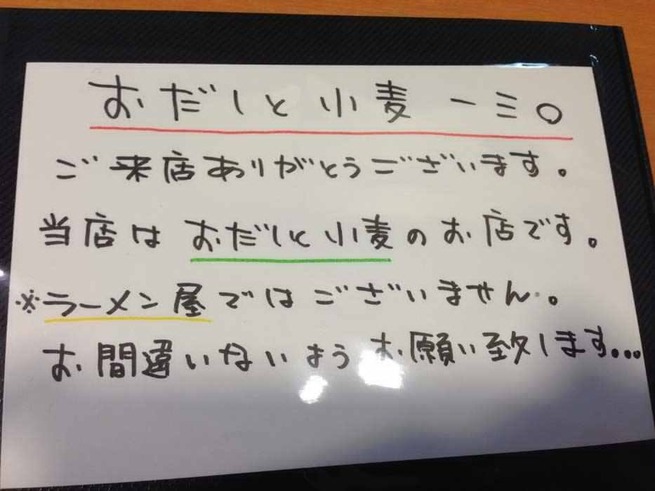 おだしと小麦 一三〇
ご来店ありがとうございます。
当店はおだしと小麦のお店です。
※ラーメン屋ではございません。
お間違いないようお願い致します...